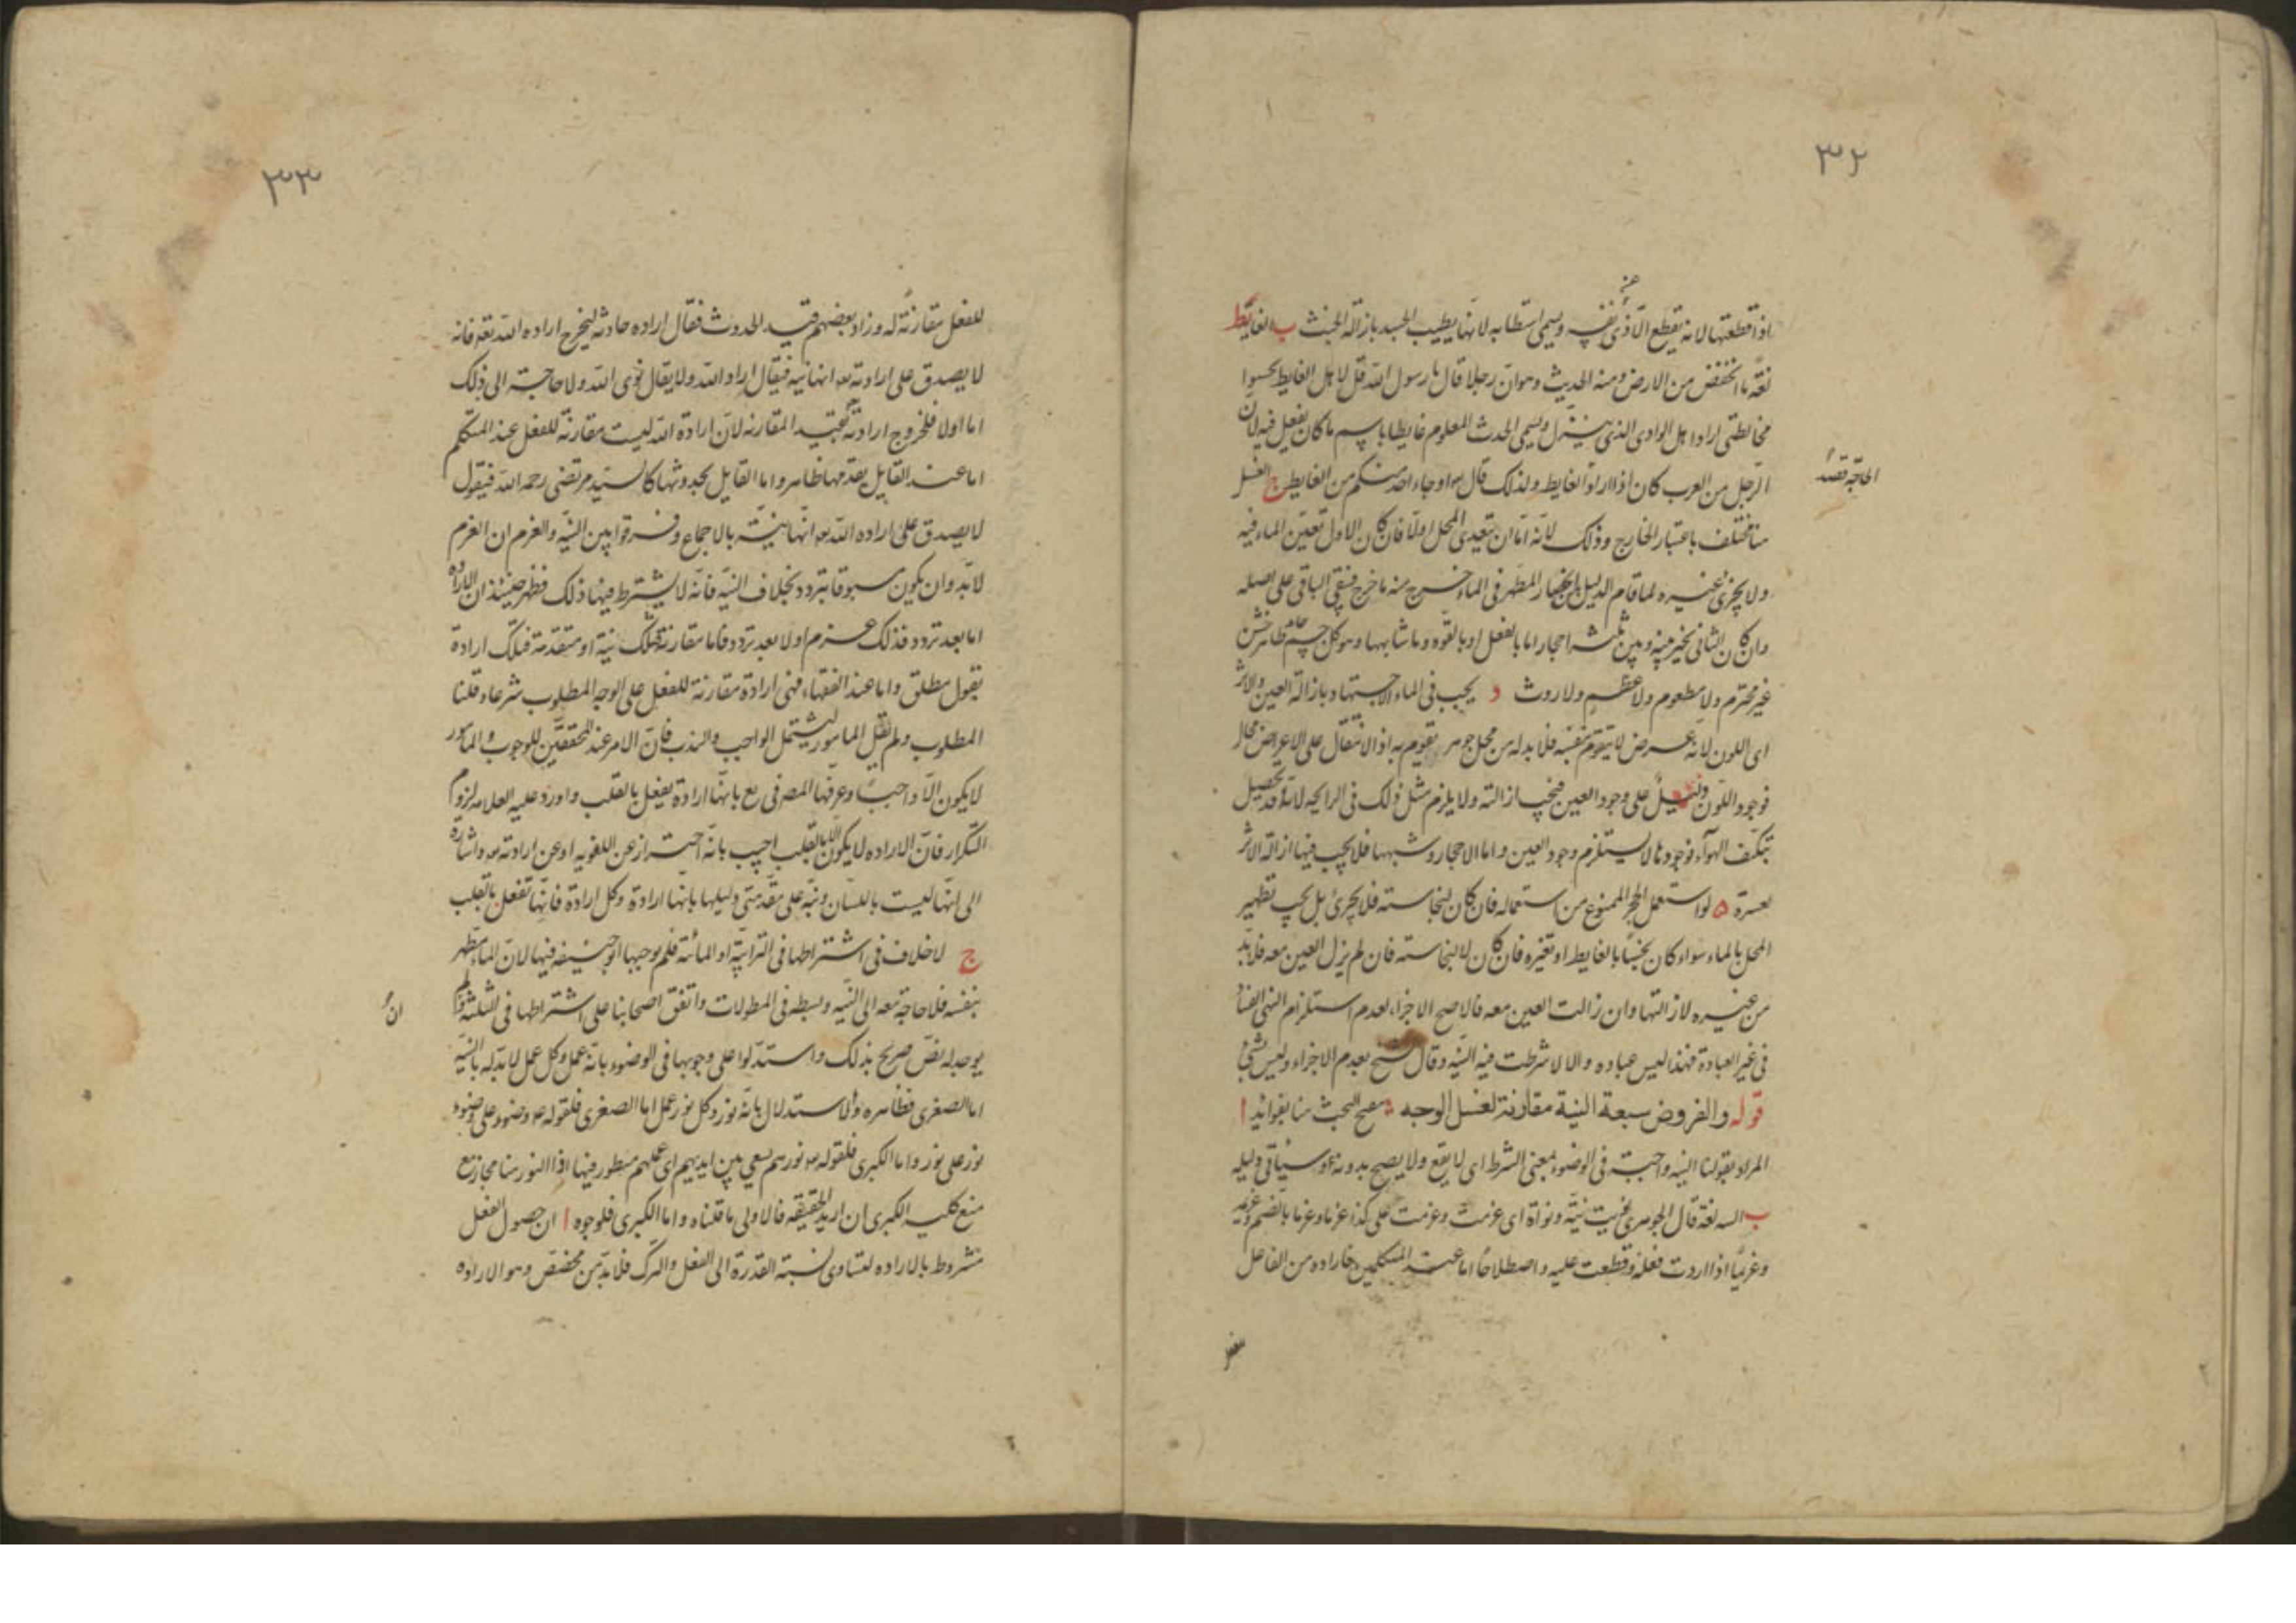 ٣٢
اذا قطعتها لانه يقطع الاذى عن نفسه ويسمى استطابه لانها يطيب الجسد بازالة الخبث ب الغايط
لغة ما انخفض من الارض ومنه الحديث وهو ان رجلا قال يا رسول الله قل لاهل الغايط يحسنوا
مخالطتى اراد اهل الوادى الذى ينزل ويسمى الحدث المعلوم غايطا باسم ما كان يفعل فيه لان
الرجل من العرب كان اذا اراد الغايط ولذلك قال او جاء احد منكم من الغايط ج الغسل
الحاجة قصد
هنا مختلف باعتبار الخارج وذلك لانه اما ان يتعدى المحل اولا فان كان الاول تعين الماء فيه
ولا يجزئ غيره لما قام الدليل انحصار المطهر فى الماء خرج منه ما خرج فبقى الباقى على اصله
وان كان الثانى تخير بينه وبين ثلثة احجار اما بالفعل او بالقوه وما شابهها وهو كل جسم طاهر خشن
غير محترم ولا مطعوم ولا عظم ولا روث د يجب فى الماء الاجتهاد بازالة العين والاثر
اى اللون لانه عرض لا يتقوم بنفسه فلا بد له من محل جوهر يقوم به اذ الانتقال على الاعراض محال
فوجود اللون دليل على وجود العين فيجب ازالته ولا يلزم مثل ذلك فى الرايحه لانه قد تحصيل
بتكيف الهوآء فوجودها لا يستلزم وجود العين واما الاحجار وشبهها فلا يجب فيها ازالة الاثر
لعسرة ه لو استعمل الحجر الممنوع من استعماله فان كان لنجاسته فلا يجزئ بل يجب تطهير
المحل بالماء سواء كان نجسا بالغايط او بغيره فان كان لا لنجاسته فان لم يزل العين معه فلا بد
من غيره لازالتها وان زالت العين معه فالاصح الاجزاء لعدم استلزام النهى الفساد
فى غير العبادة فهذا ليس عباده والا لاشرطت فيه النيه وقال الشيخ بعدم الاجزاء وليس بشئ
قوله والفروض سبعة النية مقارنة لغسل الوجه تنقيح البحث هنا بفوائد ا
المراد بقولنا النيه واجبة فى الوضوء بمعنى الشرط اى لا يقع ولا يصح بدونه وسياتى دليله
ب النيه لغة قال الجوهرى نويت نية ونواة اى عزمت وعزمت على كذا عزما وعزما بالضم وعزيمة
وعزيما اذا اردت فعله وقطعت عليه واصطلاحا اما عند المتكلمين فاراده من الفاعل
للفعل
٣٣
للفعل مقارنة له وزاد بعضهم قيد الحدوث فقال اراده حادثه ليخرج اراده الله تعالى فانه
لا يصدق على ارادته انها نيه فيقال اراد الله ولا يقال نوى الله ولا حاجة الى ذلك
اما اولا فلخروج ارادته بقيد المقارنه لان ارادة الله ليست مقارنة للفعل عند المتكلم
اما عند القايل بقدمها فظاهر واما القايل بحدوثها كالسيد مرتضى رحمه الله فيقول
لا يصدق على اراده الله انها نية بالاجماع وفرقوا بين النيه والعزم ان العزم
لا بد وان يكون مسبوقا بتردد بخلاف النيه فانه لا يشترط فيها ذلك فظهر حينئذ ان الاراده
اما بعد تردد فذلك عزم او لا بعد تردد فاما مقارنة فتلك نية او متقدمة فتلك ارادة
بقول مطلق واما عند الفقهاء فهى ارادة مقارنة للفعل على الوجه المطلوب شرعا وقلنا
المطلوب ولم نقل المامور ليشتمل الواجب والندب فان الامر عند المحققين للوجوب والمامور
لا يكون الا واجبا وعرفها المصنف فى يع بانها ارادة يفعل بالقلب واورد عليه العلامه لزوم
التكرار فان الاراده لا يكون الا بالقلب اجيب بانه احتراز عن اللغويه او عن ارادته واشارة
الى انها ليست باللسان ونبه على مقدمتى دليلها بانها ارادة وكل ارادة فانها تفعل بالقلب
ج لا خلاف فى اشتراطها فى الترابية اما المائية فلم يوجبها ابو حنيفه فيها لان الماء مطهر
بنفسه فلا حاجة معه الى النيه وبسطه فى المطولات واتفق اصحابنا على اشتراطها فى الثلثة ولم
ان
يوجد له نص صريح بذلك واستدلوا على وجوبها فى الوضوء بانه عمل وكل عمل لا بد له بالنيه
اما الصغرى فظاهره والاستدلال بانه نور وكل نور عمل اما الصغرى فلقوله ع وضوء على وضوء
نور على نور واما الكبرى فلقوله نورهم يسعى بين ايديهم اى عملهم منظور فيها اذا النور هنا مجاز مع
منع كليه الكبرى ان اريد الحقيقه فالاولى ما قلناه واما الكبرى فلوجوه ا ان حصول الفعل
مشروط بالاراده لتساوى نسبة القدرة الى الفعل والترك فلا بد من مخصص وهو الاراده